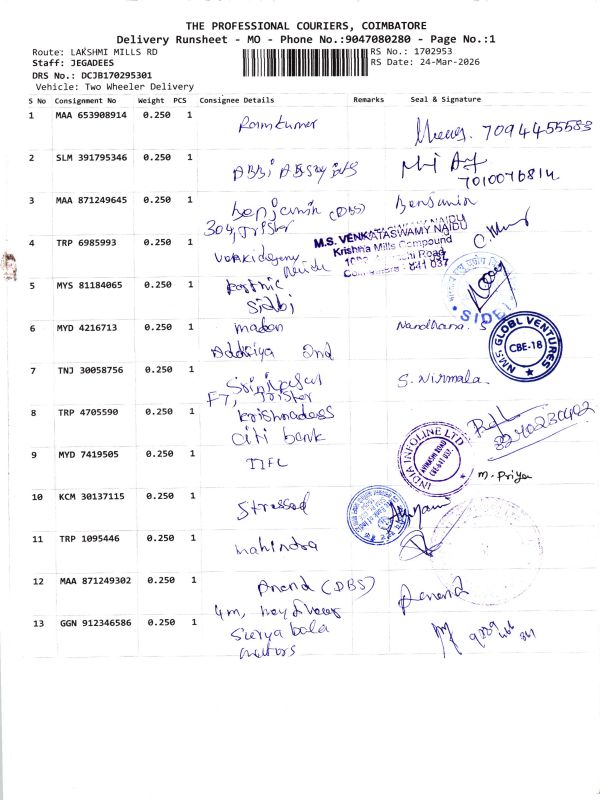 THE PROFESSIONAL COURIERS, COIMBATORE
Delivery Runsheet - MO - Phone No.:9047080280 - Page No.:1
Route: LAKSHMI MILLS RD
RS No.: 1702953
Staff: JEGADEES
RS Date: 24-Mar-2026
DRS No.: DCJB170295301
Vehicle: Two Wheeler Delivery
S No Consignment No Weight PCS Consignee Details Remarks Seal & Signature
1 MAA 653908914 0.250 1 Ramkumar 7094455583
2 SLM 391795346 0.250 1 7010076814
3 MAA 871249645 0.250 1 benjamin (DBS) Benjamin
304, Trister
4 TRP 6985993 0.250 1 M.S. VENKATASWAMY NAIDU
Krishna Mills Compound
Road
641 037
5 MYS 81184065 0.250 1
Sidbi SIDBI
6 MYD 4216713 0.250 1 madon Nandhana. S
Addirya 2nd NMS GLOBL VENTURES CBE-18
7 TNJ 30058756 0.250 1 S. Nirmala.
F7, Trister
8 TRP 4705590 0.250 1 krishnadass
citi bank
9 MYD 7419505 0.250 1 IIFL INDIA INFOLINE LTD M. Priya
10 KCM 30137115 0.250 1 Stressed
11 TRP 1095446 0.250 1 mahindra
12 MAA 871249302 0.250 1 Anand (DBS) Anand
4m,
13 GGN 912346586 0.250 1 Surya bala
motors